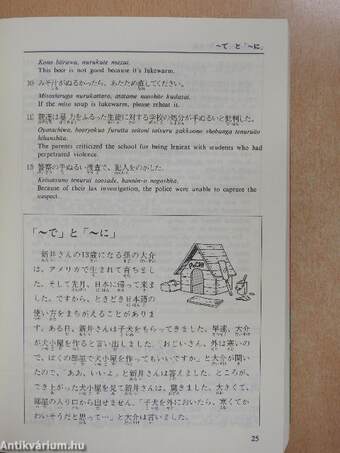 〜で」と「〜に」
Kono bīruwa, nurukute mazui.
This beer is not good because it's lukewarm.
みそ汁がぬるかったら、あたため直してください。
Misoshiruga nurukattara, atatame naoshite kudasai.
If the miso soup is lukewarm, please reheat it.
親達は暴力をふるった生徒に対する学校の処分が手ぬるいと批判した。
The parents criticized the school for being lenient with students who had
perpetrated violence.
警察の手ぬるい捜査で、犯人をのがした。
Because of their lax investigation, the police were unable to capture the
suspect.
「〜で」と「〜に」
新井さんの13歳になる孫の大介
は、アメリカで生まれて育ちまし
た。そして先月、日本に帰って来ま
した。ですから、ときどき日本語の
使い方をまちがえることがありま
す。ある日、新井さんは子犬をもらってきました。早速、大介
が犬小屋を作ると言い出しました。「おじいさん、外は寒いの
で、ぼくの部屋で犬小屋を作ってもいいですか」と大介が聞い
たので、「ああ、いいよ」と新井さんは答えました。ところが、
でき上がった犬小屋を見て新井さんは、驚きました。大きくて、
部屋の入り口から出せません。「子犬を外においたら、寒くてか
わいそうだと思って…」と大介は言いました。
25
Antikvárium.hu